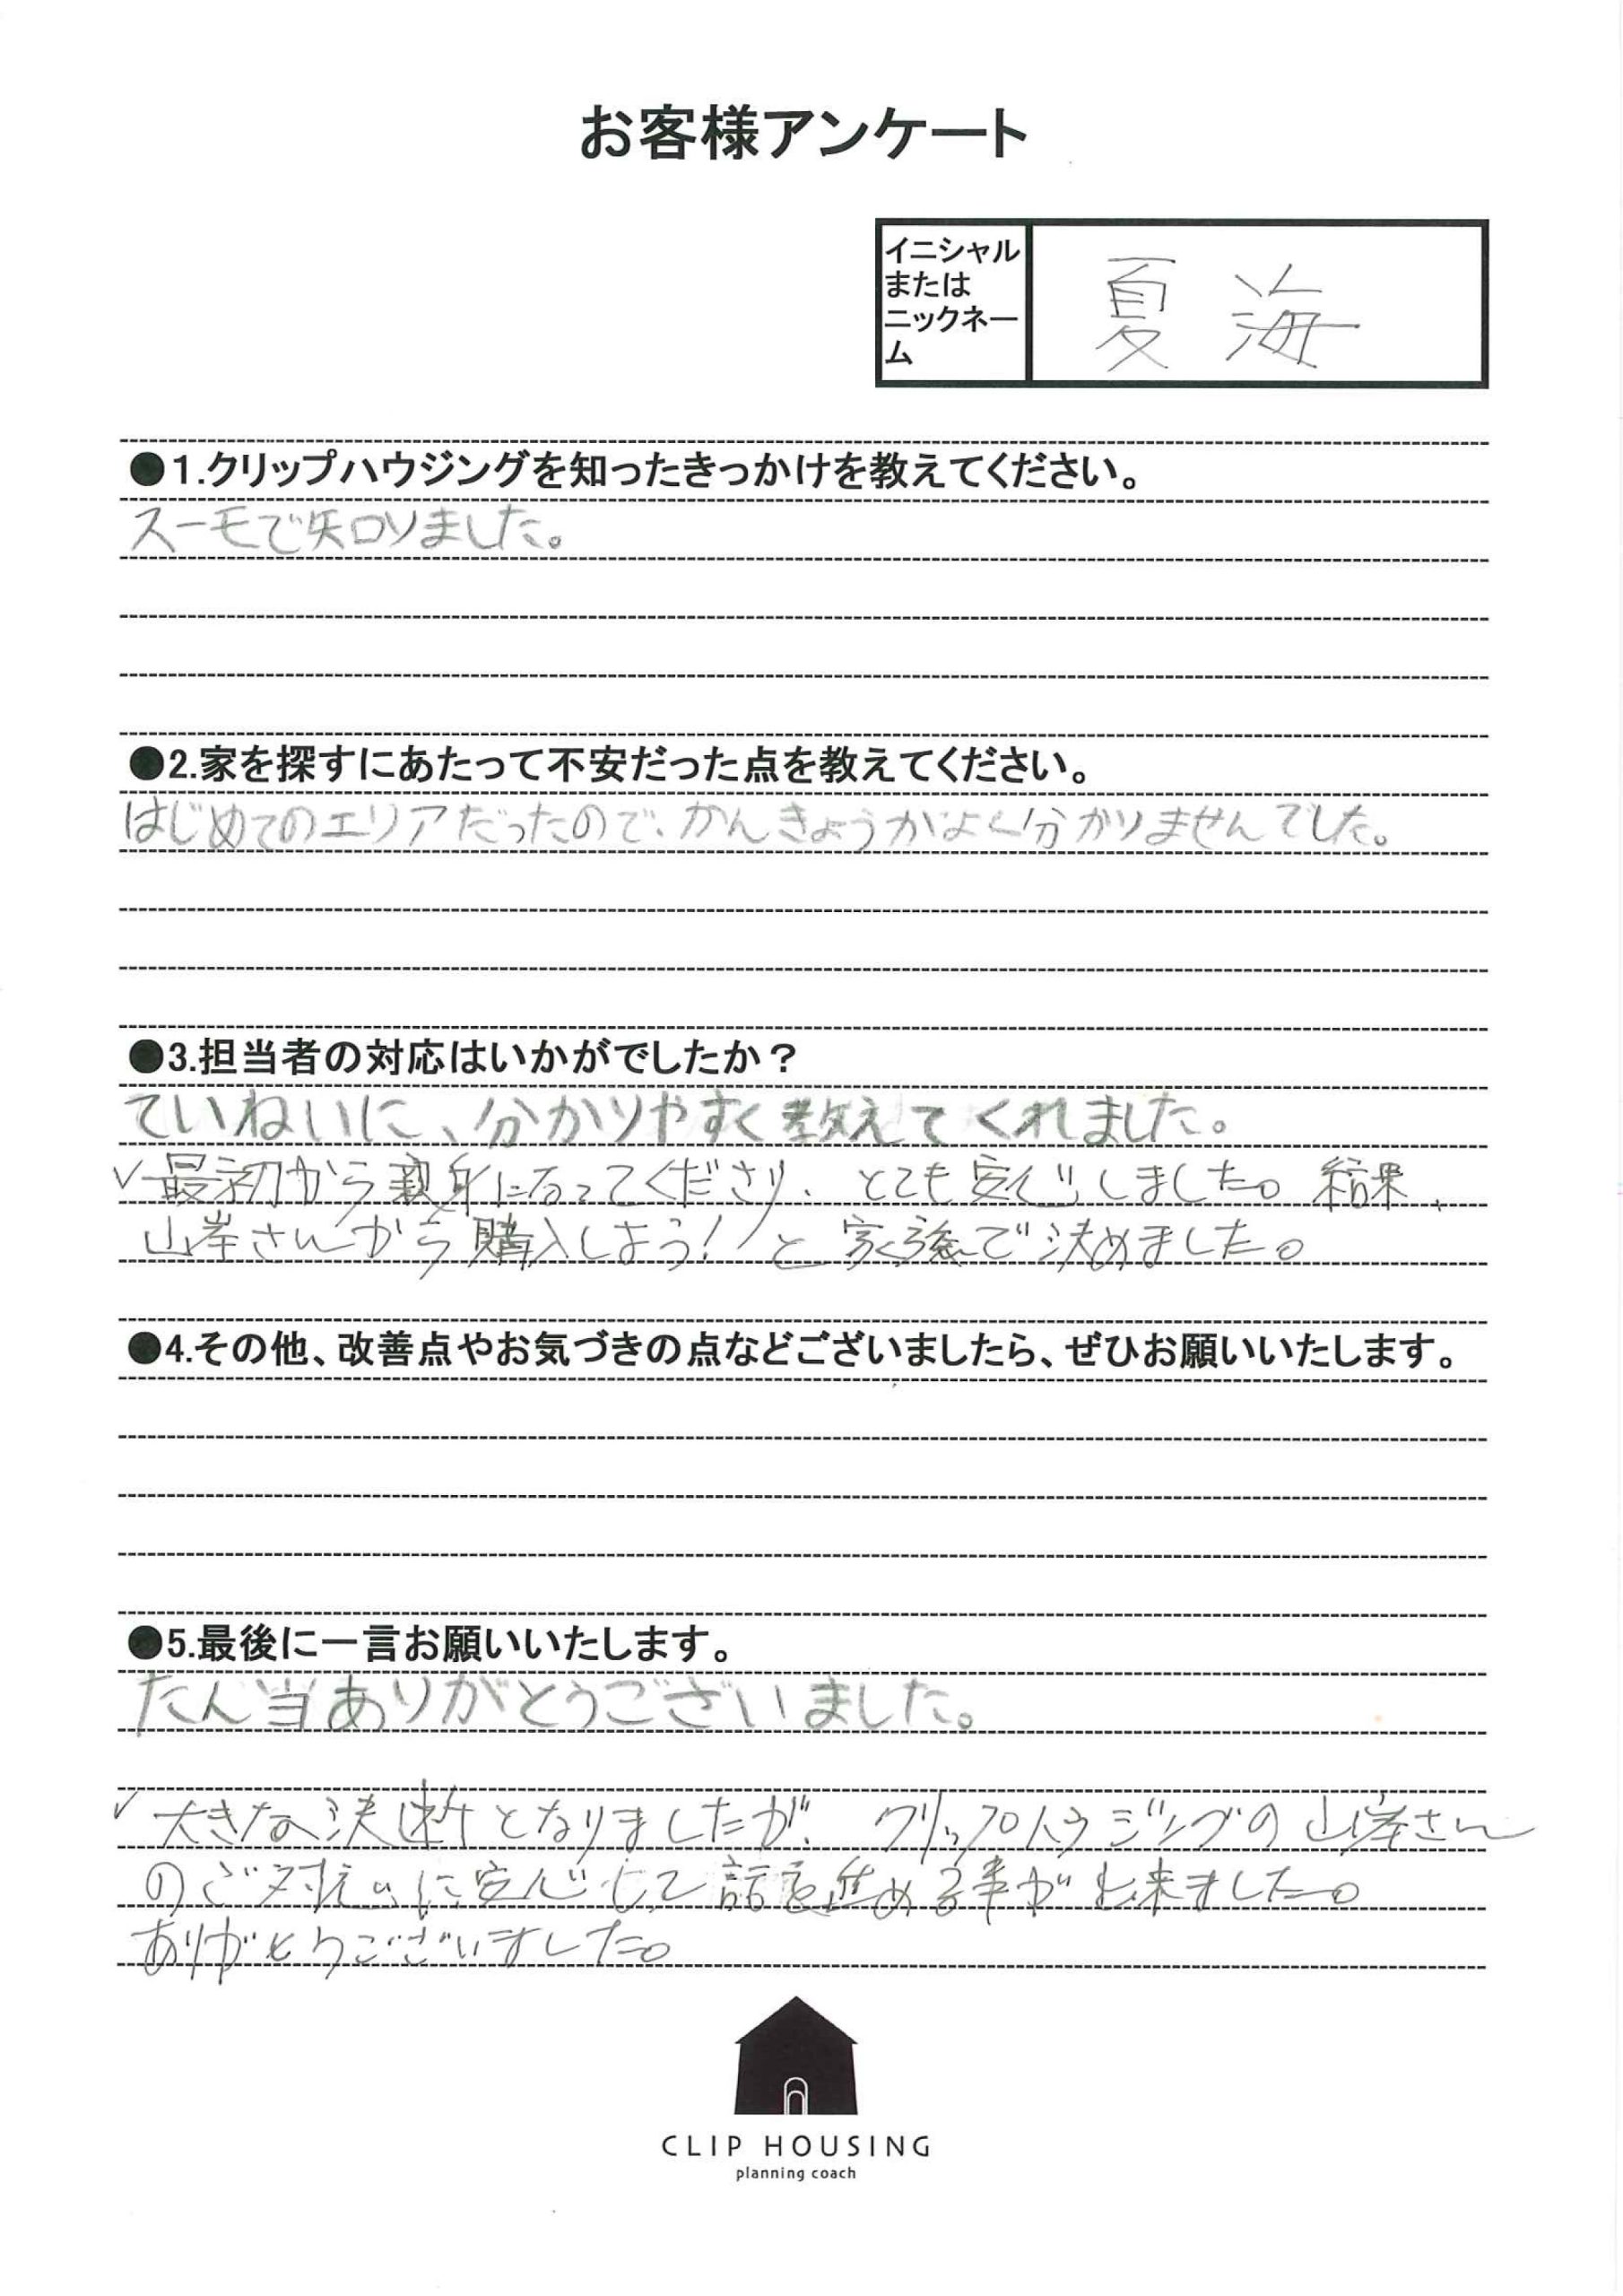 お客様アンケート
イニシャル
または
ニックネー
ム
夏海
●1.クリップハウジングを知ったきっかけを教えてください。
スーモで知りました。
●2.家を探すにあたって不安だった点を教えてください。
はじめてのエリアだったので、かんきょうがよく分かりませんでした。
●3.担当者の対応はいかがでしたか？
ていねいに、分かりやすく教えてくれました。
✓最初から親身になってくださり、とても安心しました。結果、
山岸さんから購入しよう！と家族で決めました。
●4.その他、改善点やお気づきの点などございましたら、ぜひお願いいたします。
●5.最後に一言お願いいたします。
たん当ありがとうございました。
✓大きな決断となりましたが、クリップハウジングの山岸さん
のご対応に安心して話を進める事が出来ました。
ありがとうございました。
CLIP HOUSING
planning coach